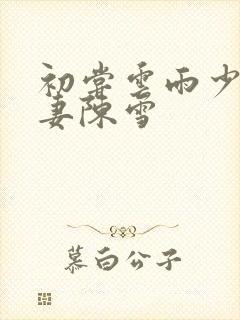 初尝雲雨少
妻陳雪
慕白公子